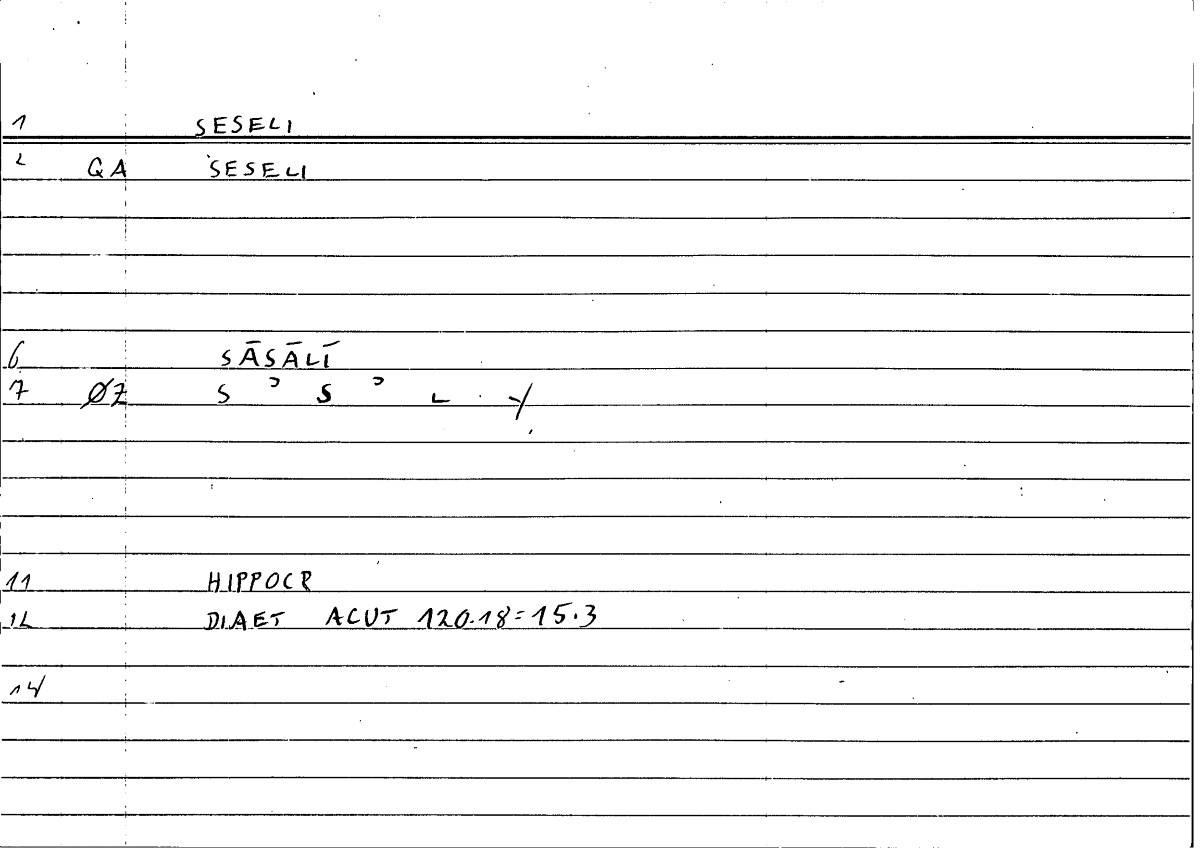 1 SESELI
2 QA SESELI
6 SĀSĀLĪ
7 ØZ S ʾ S ʾ L Y
11 HIPPOCR
12 DIAET ACUT 120.18=15.3
14